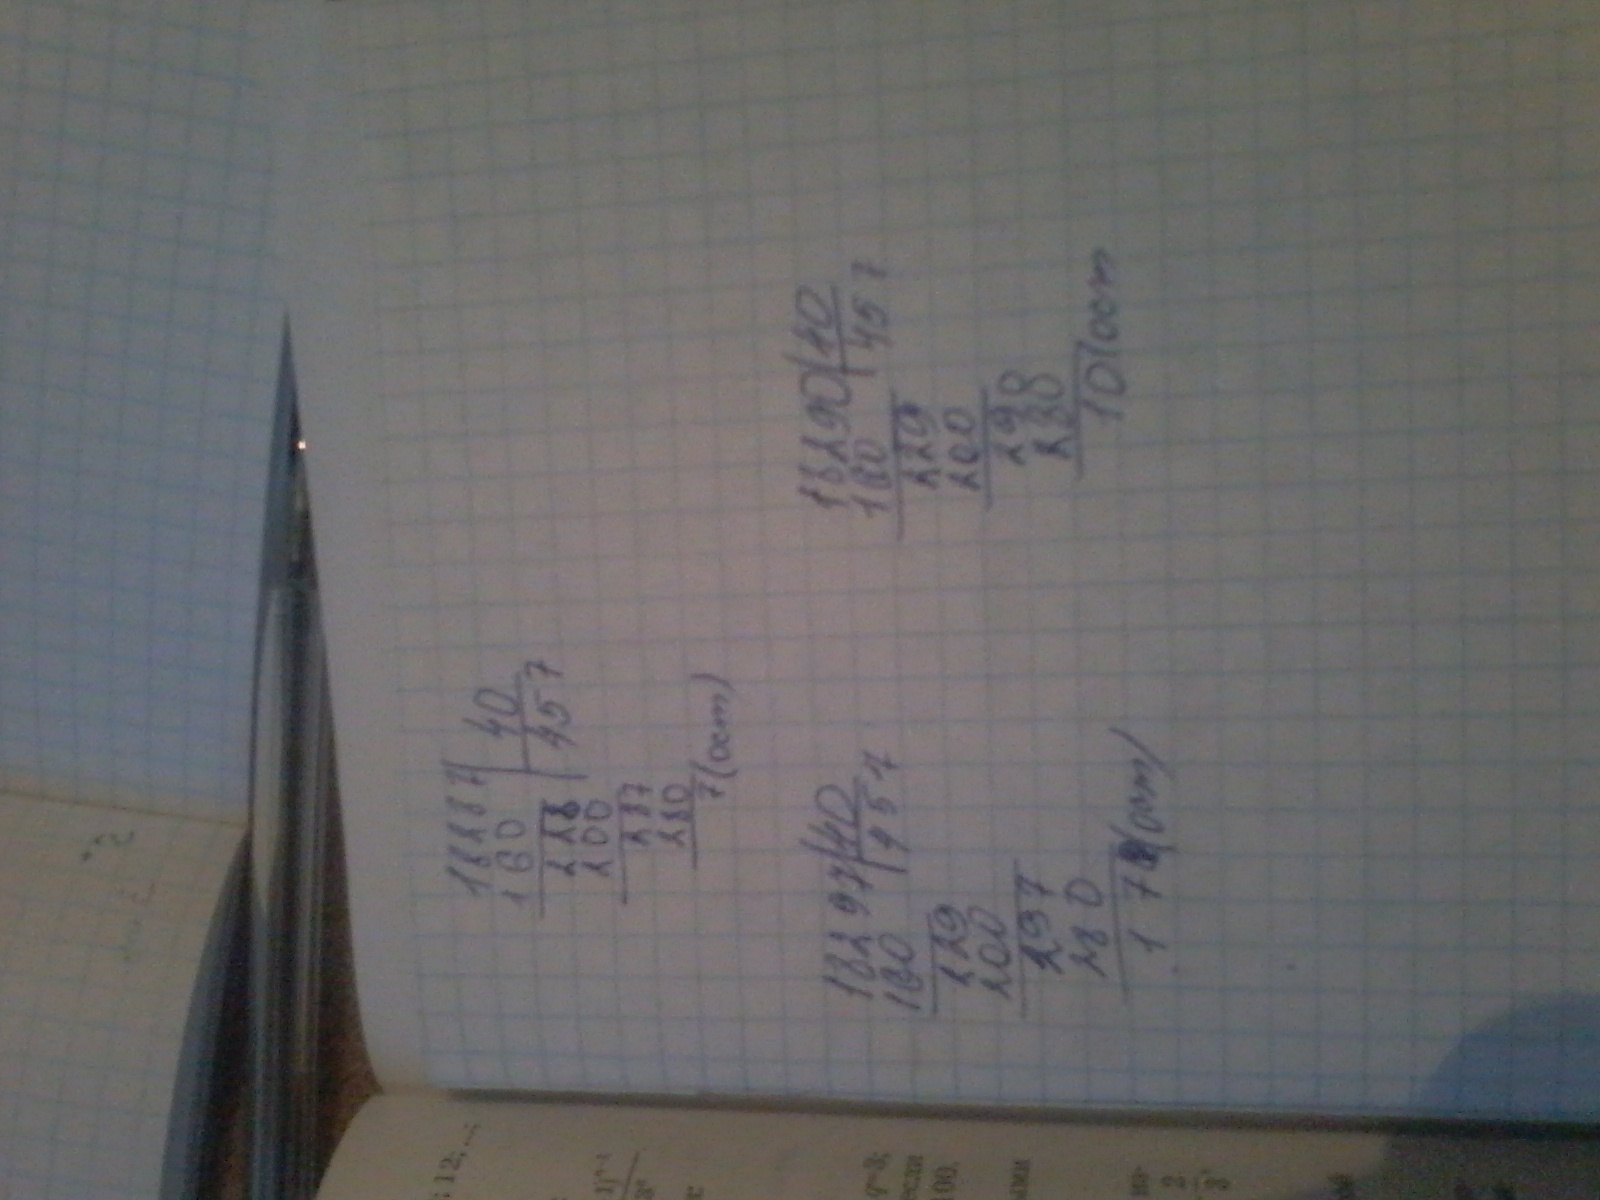 18287 | 40
160 | 457
228
200
287
280
7 (ост)
18297 | 40
160 | 457
229
200
297
280
17 (ост)
18290 | 40
160 | 457
229
200
290
280
10 (ост
: 12, ...